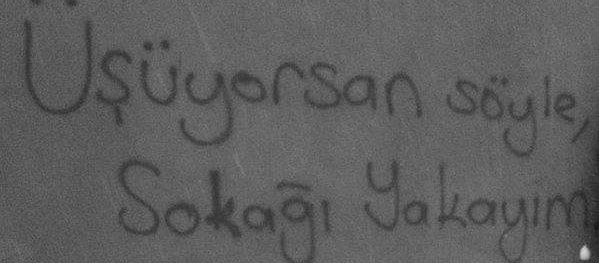 Üşüyorsan söyle,
Sokağı Yakayım.